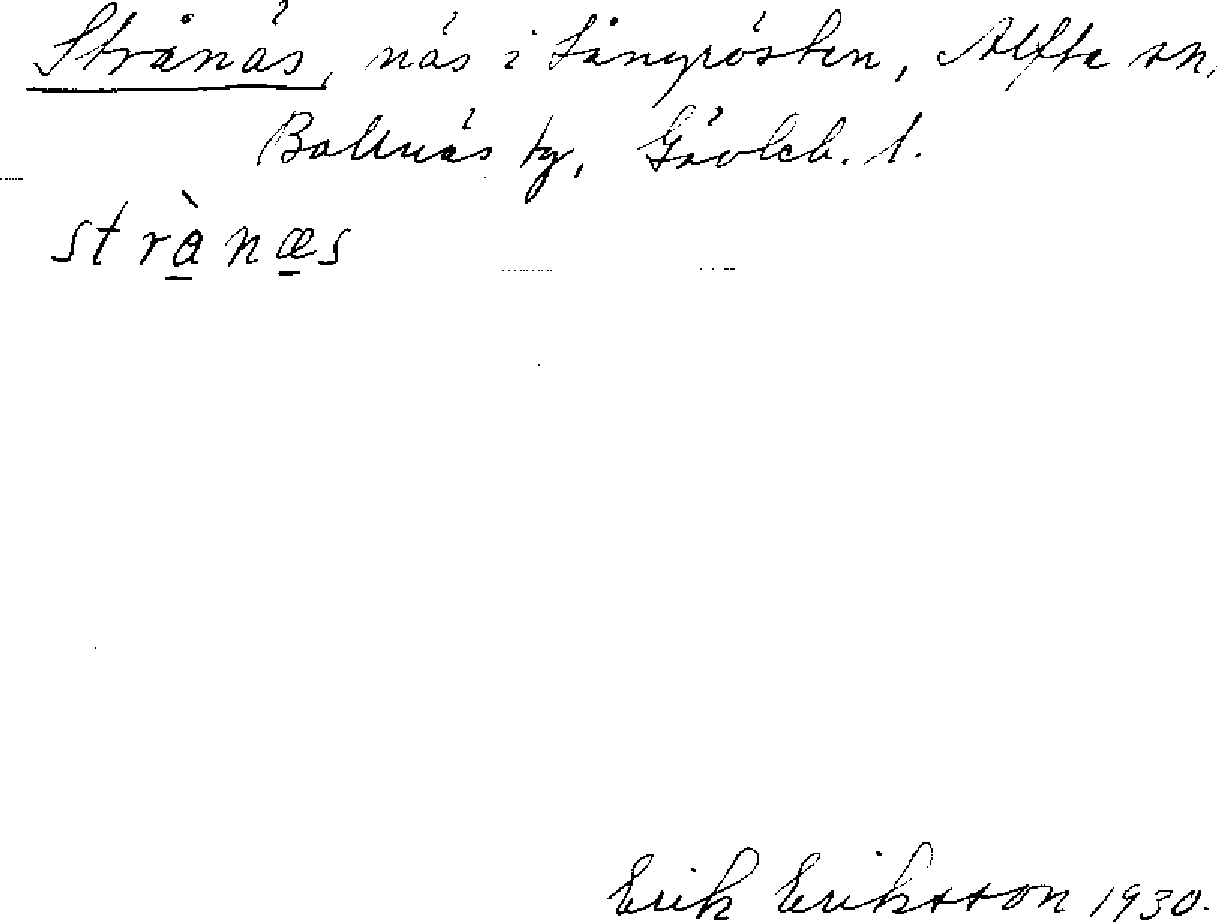 Strånäs, näs i Långrösten, Alfta sn,
Bollnäs tg, Gävleb. l.
strànæs
Erik Eriksson 1930.